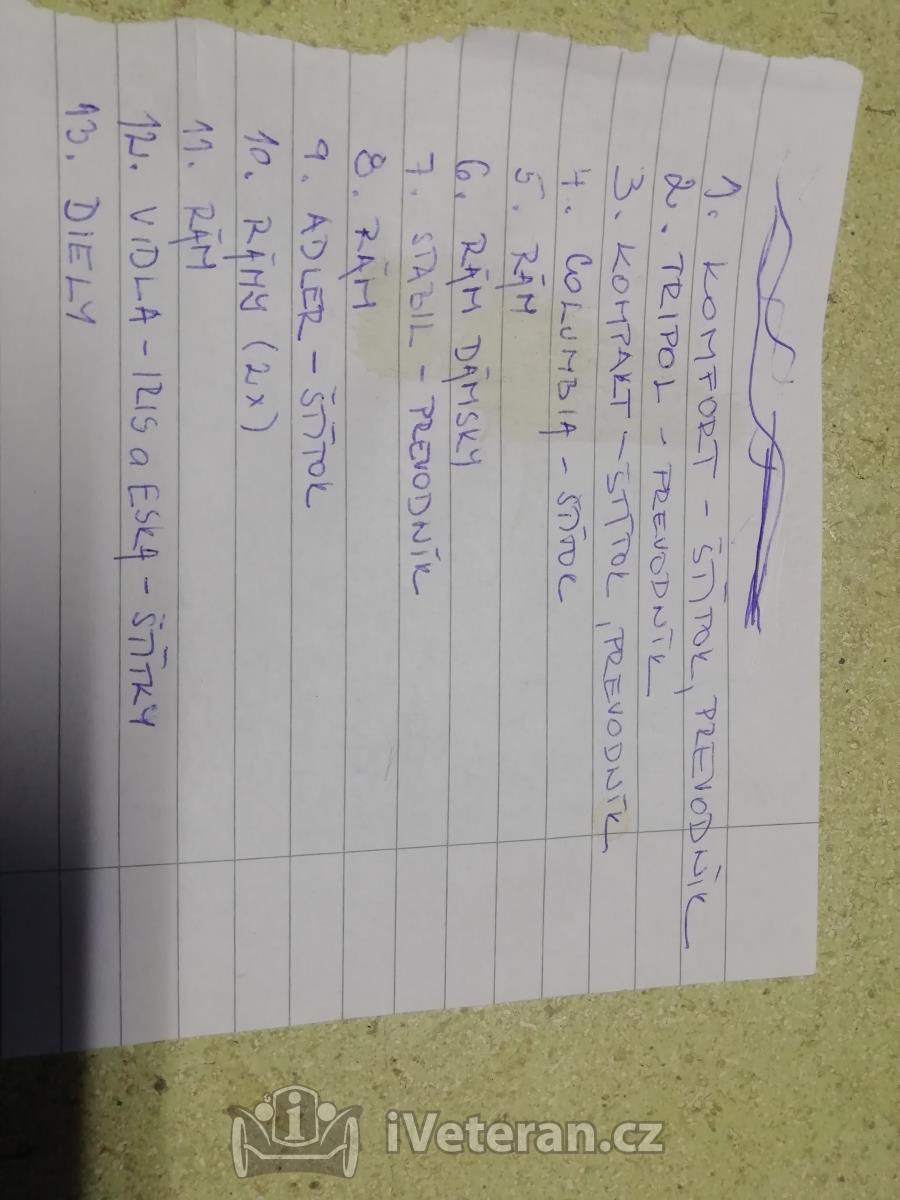 1. KOMFORT - ŠTÍTOK, PREVODNÍK
2. TRIPOL - PREVODNÍK
3. KOMPAKT - ŠTÍTOK, PREVODNÍK
4. COLUMBIA - ŠTÍTOK
5. RÁM
6. RÁM DÁMSKY
7. STABIL - PREVODNÍK
8. RÁM
9. ADLER - ŠTÍTOK
10. RÁMY (2x)
11. RÁM
12. VIDLA - IRIS a ESKA - ŠTÍTKY
13. DIELY
iVeteran.cz